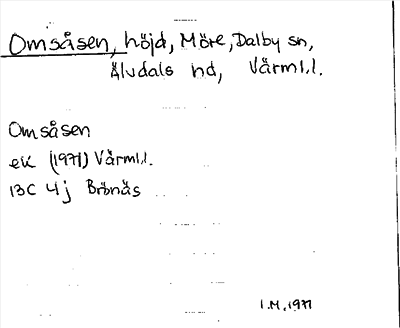 Omsåsen, höjd, Möre, Dalby sn,
Älvdals hd, Värml.l.
Omsåsen
ek (1971) Värml.l.
13C 4j Brönäs
I.M. 1971